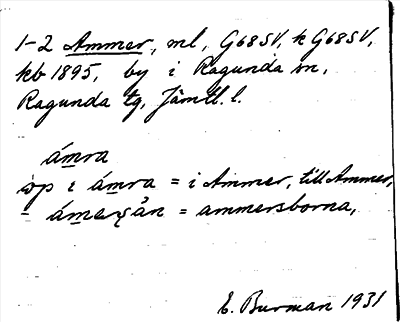 1-2 Ammer, ml, G68SV, k G68SV,
kb 1895, by i Ragunda sn,
Ragunda tg, Jämtl. l.
ámra
op i ámra = i Ammer, till Ammer,
= ammersborna,
E. Burman 1931